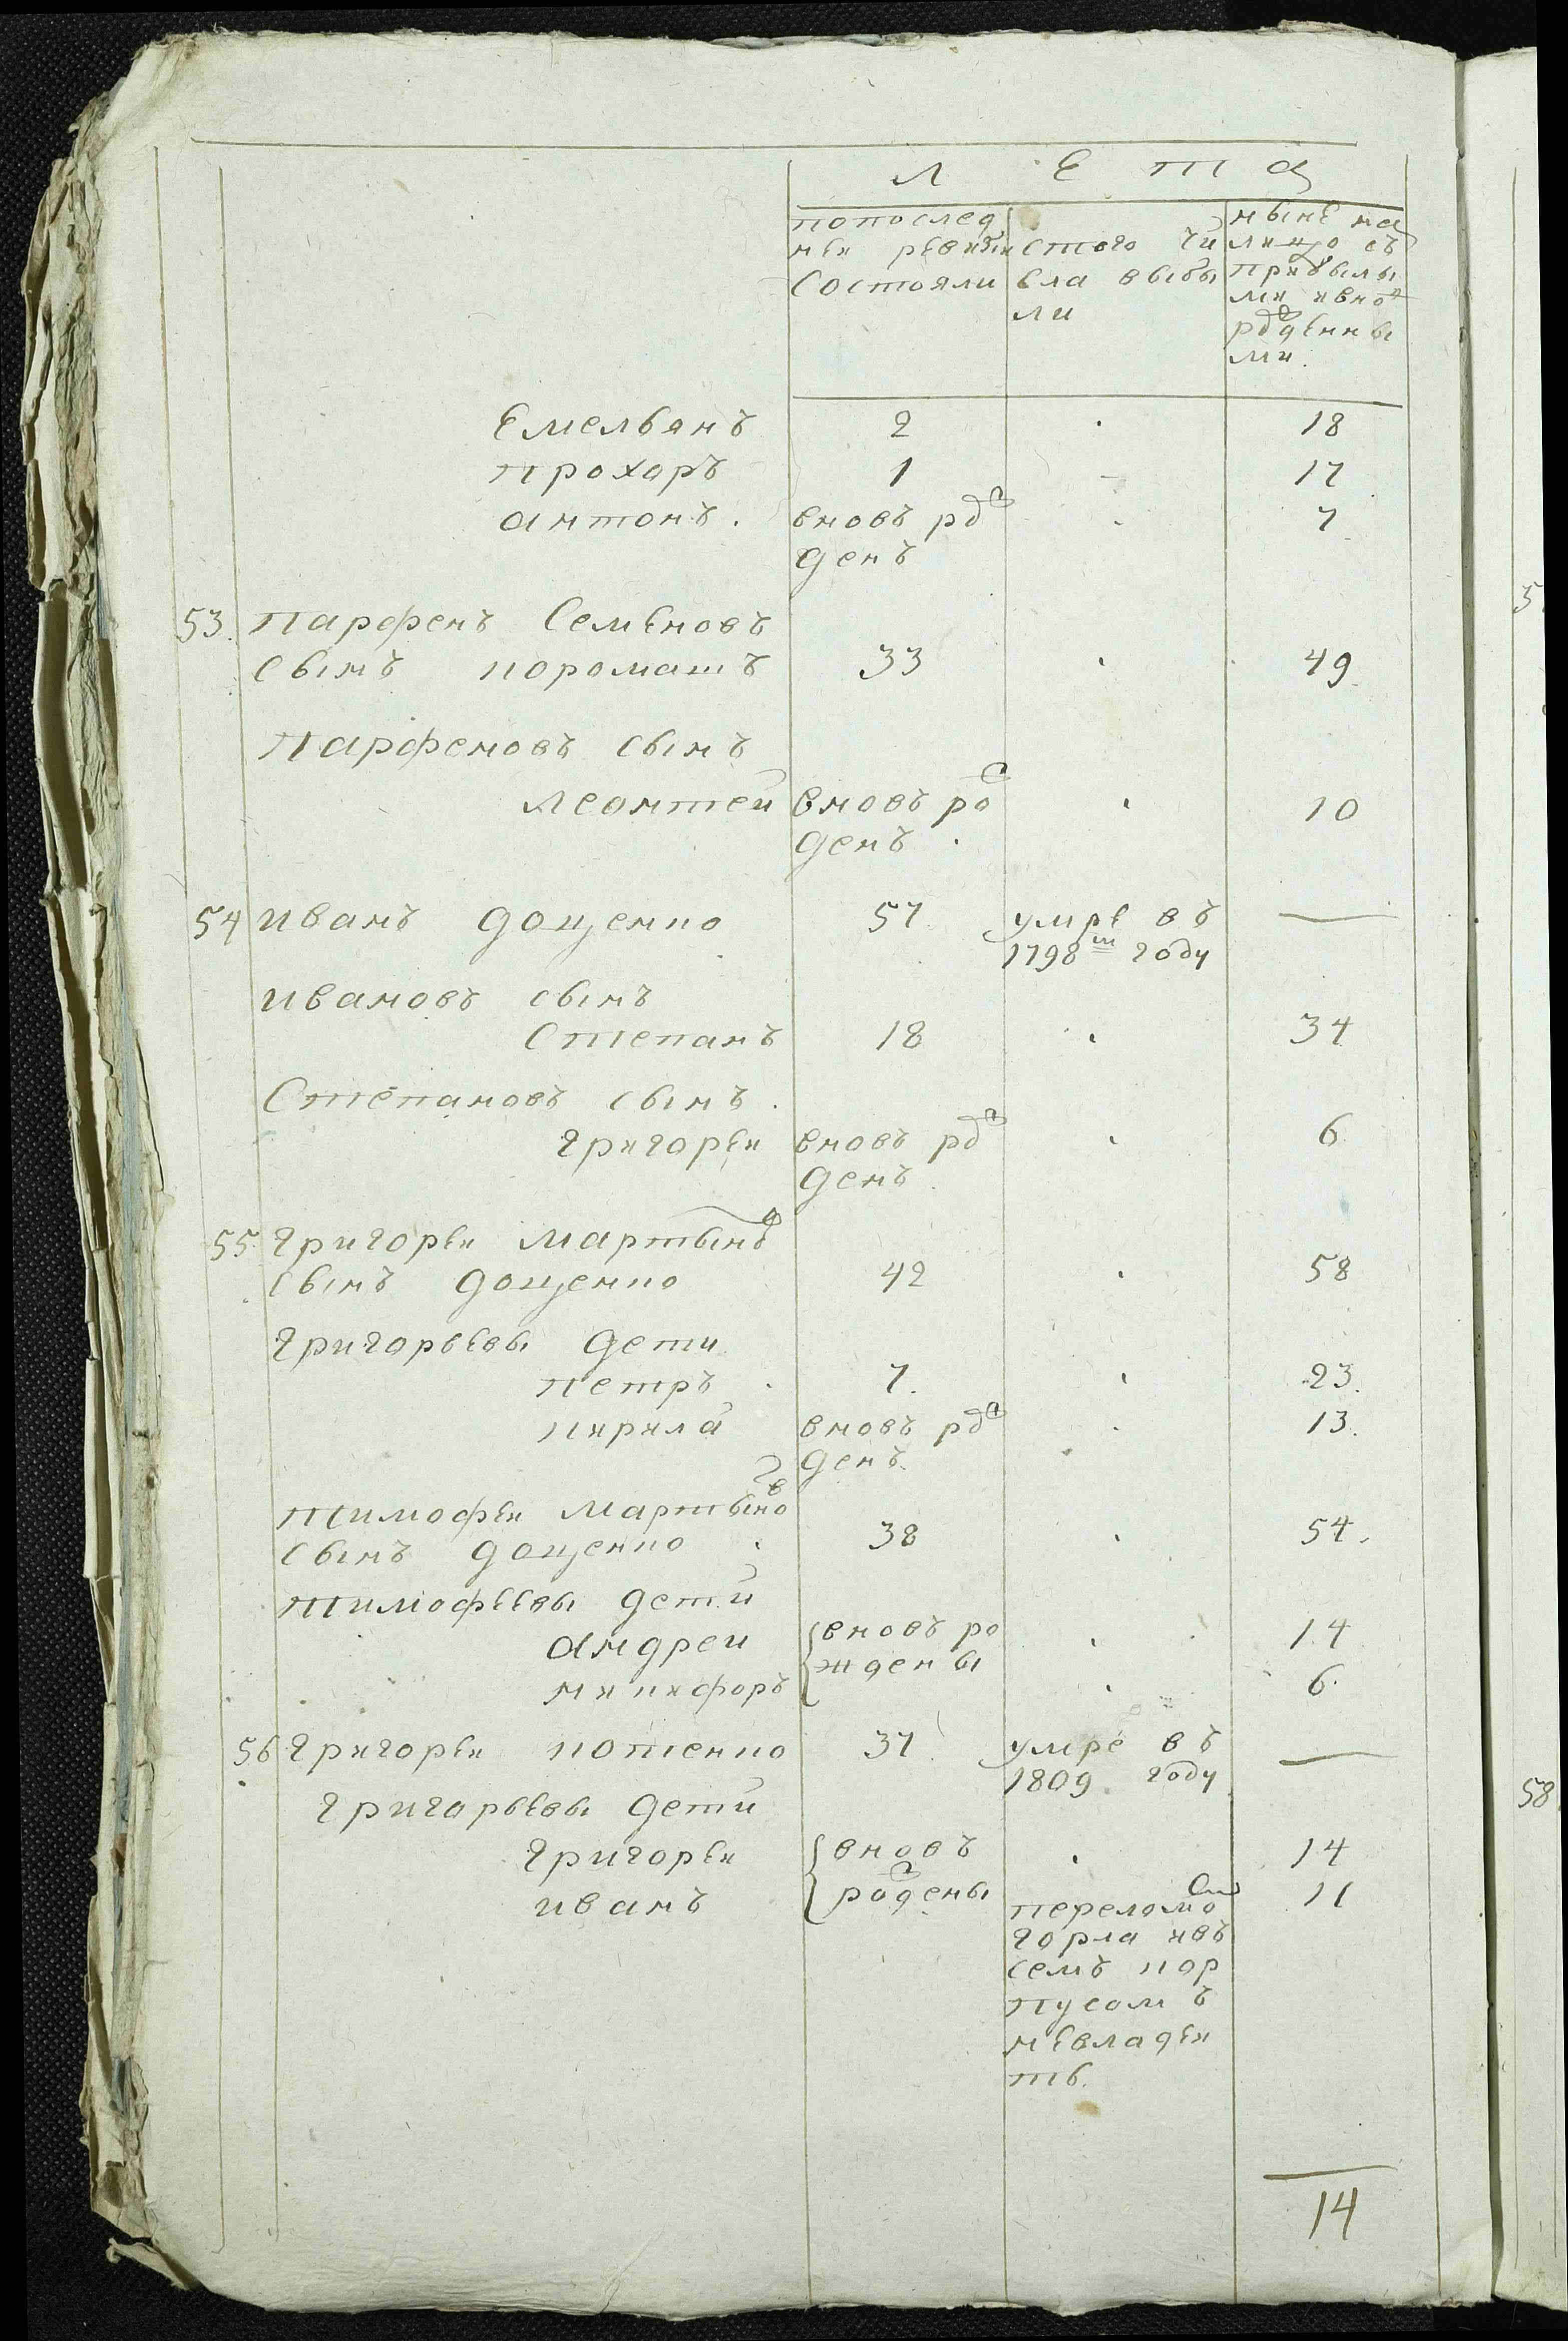 Л Е Т А
попослед
ней ревизии
состояли
стого чи
сла выбы
ли
ныне на
лицо съ
прибылы
ми ивно
рожденны
ми.
Емельянъ 2 18
Прохоръ 1 17
Антонъ. вновь рож 7
денъ
53. Парфенъ Семеновъ
сынъ Коромашъ 33 49
Парфеновъ сынъ
Леонтей вновь рож 10
денъ
54 Иванъ Доценко 57 умре въ —
1798м году
Ивановъ сынъ
Степанъ 18 34
Степановъ сынъ.
Григорей вновь рож 6
денъ
55 Григорей Мартыновъ
сынъ Доценко 42 58
Григорьевы дети
Петръ 7. 23.
Кирила вновь рож 13.
денъ
Тимофей Мартыновъ
сынъ Доценко 38 54.
Тимофеевы дети
Андрей вновь ро 14
Никифоръ ждены 6.
56 Григорей Котенко 37 умре въ —
1809 году
Григорьевы дети
Григорей вновь 14
Иванъ рождены 11
переломо
горла ивъ
семъ кор
пусомъ
невладеи
ть.
14
5
58